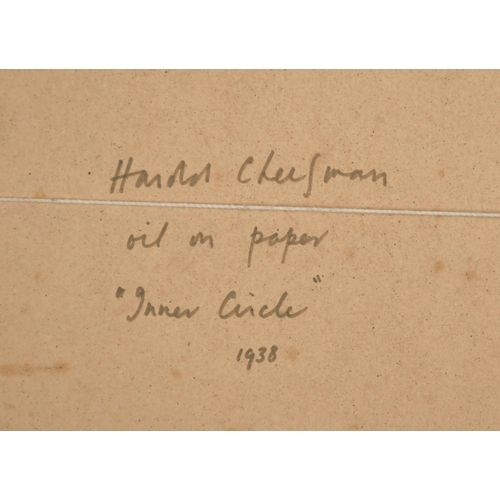 Harold Cheesman
oil on paper
"Inner Circle"
1938